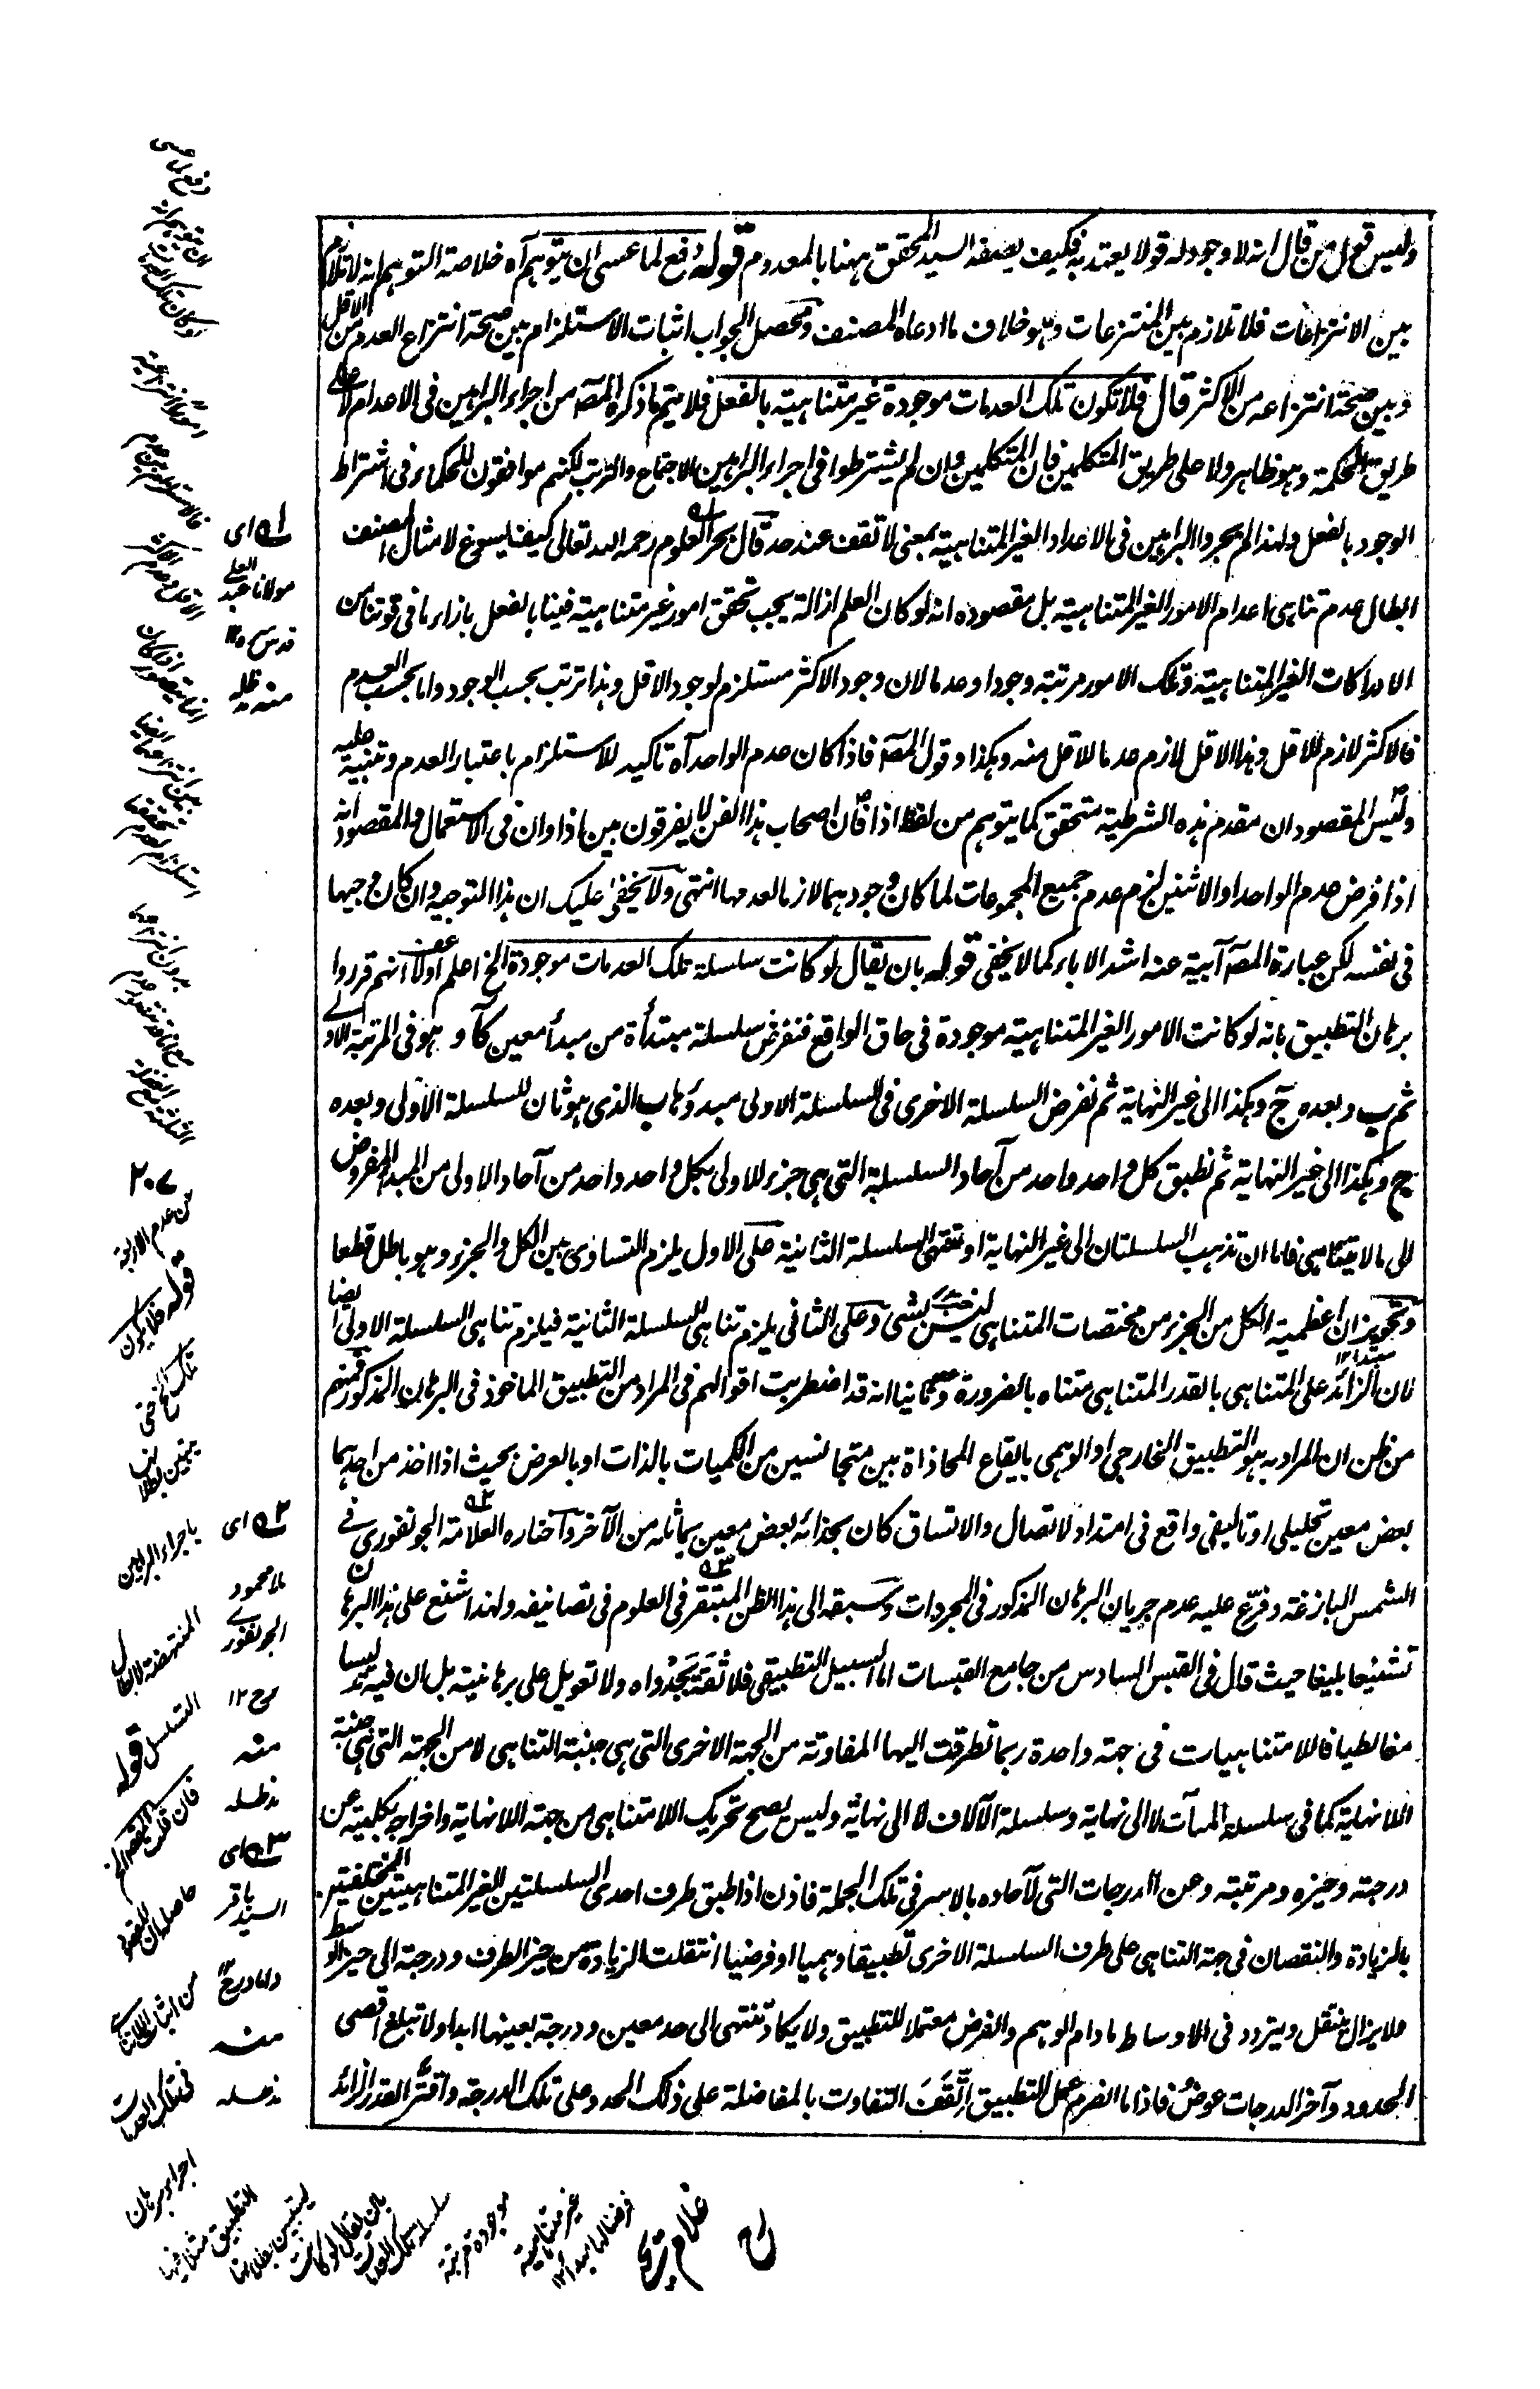 وليس قول من قال انه لا وجود له قولا يعتد به فكيف يصفه السيد المحقق ههنا بالمعدوم قوله دفع لما عسى ان يتوهم آه خلاصة التوهم انه لا تلازم
بين الانتزاعات فلا تلازم بين المنتزعات وهو خلاف ما ادعاه المصنف ومحصل الجواب اثبات الاستلزام بين صحة انتزاع العدم من الاقل
وبين صحة انتزاعه من الاكثر قال فلا تكون تلك العدمات موجودة غير متناهية بالفعل فلا يتم ما ذكره المصـ من اجراء البراهين فى الاعدام لا على
طريق الحكمة وهو ظاهر ولا على طريق المتكلمين فان المتكلمين وان لم يشترطوا فى اجراء البراهين الاجتماع والترتب لكنهم موافقون للحكماء فى اشتراط
الوجود بالفعل ولهذا لم يجروا البراهين فى الاعداد الغير المتناهية بمعنى لا تقف عند حد قال بحر العلوم رحمه الله تعالى كيف يسوغ لامثال المصنف
ابطال عدم تناهى اعدام الامور الغير المتناهية بل مقصوده انه لو كان العلم ازالة يجب تحقق امور غير متناهية فينا بالفعل بازاء ما فى قوتنا من
الادراكات الغير المتناهية وتلك الامور مرتبة وجودا وعدما لان وجود الاكثر مستلزم لوجود الاقل وهذا ترتب بحسب الوجود واما بحسب العدم
فالاكثر لازم للاقل وهذا الاقل لازم عدما للاقل منه وهكذا وقول المصـ فاذا كان عدم الواحد آه تاكيد للاستلزام باعتبار العدم وتنبيه عليه
وليس المقصود ان مقدم هذه الشرطية متحقق كما يتوهم من لفظ اذا فان اصحاب هذا الفن لا يفرقون بين اذا وان فى الاستعمال والمقصود انه
اذا فرض عدم الواحد او الاثنين لزم عدم جميع المجموعات لما كان وجودهما لازما لعدمها انتهى ولا يخفى عليك ان هذا التوجيه وان كان وجيها
فى نفسه لكن عبارة المصـ آبية عنه اشد الاباء كما لا يخفى قوله بان يقال لو كانت سلسلة تلك العدمات موجودة الخ اعلم اولا انهم قرروا
برهان التطبيق بانه لو كانت الامور الغير المتناهية موجودة فى حاق الواقع فنفرض سلسلة مبتدأة من مبدأ معين كآ وهو فى المرتبة الاولى
ثم ب وبعده ج وهكذا الى غير النهاية ثم نفرض السلسلة الاخرى فى السلسلة الاولى مبدؤها ب الذى هو ثان للسلسلة الاولى وبعده
ج وهكذا الى غير النهاية ثم نطبق كل واحد واحد من آحاد السلسلة التى هى جزء للاولى بكل واحد واحد من آحاد الاولى من المبدأ المفروض
الى ما لا يتناهى فاما ان تذهب السلسلتان الى غير النهاية او تنتهى السلسلة الثانية على الاول يلزم التساوى بين الكل والجزء وهو باطل قطعا
وتجويز ان اعظمية الكل من الجزء من مختصات المتناهى ليس بشئ وعلى الثانى يلزم تناهى السلسلة الثانية فيلزم تناهى السلسلة الاولى ايضا
لان الزائد على المتناهى بالقدر المتناهى متناه بالضرورة وثانيا انه قد اضطربت اقوالهم فى المراد من التطبيق الماخوذ فى البرهان المذكور فمنهم
من ظن ان المراد به هو التطبيق الخارجى او الوهمى بايقاع المحاذاة بين متجانسين من الكميات بالذات او بالعرض بحيث اذا اخذ من احدهما
بعض معين تحليلى او تاليفى واقع فى امتداد الاتصال والاتساق كان بحذائه بعض معين يماثله من الآخر واختاره العلامة الجونفورى فى
الشمس البازغة وفرّع عليه عدم جريان البرهان المذكور فى المجردات وسبقه الى هذا الظن المتبقر فى العلوم فى تصانيفه ولهذا شنع على هذا البرهان
تشنيعا بليغا حيث قال فى القبس السادس من جامع القبسات اما السبيل التطبيقى فلا ثقة بجدواه ولا تعويل على برهانيته بل ان فيه تدليسا
مغالطيا فاللامتناهيات فى جهة واحدة ربما تطرقت اليها المفاوتة من الجهة الاخرى التى هى جنبة التناهى لا من الجهة التى هى جنبة
اللانهاية كما فى سلسلة المآت لا الى نهاية وسلسلة الآلاف لا الى نهاية وليس يصح تحريك اللامتناهى من جهة اللانهاية واخراجه بكليته عن
درجته وحيزه ومرتبته وعن الدرجات التى لآحاده بالاسر فى تلك الجملة فاذن اذا طبق طرف احدى السلسلتين الغير المتناهيتين المختلفتين
بالزيادة والنقصان فى جهة التناهى على طرف السلسلة الاخرى تطبيقا وهميا او فرضيا انتقلت الزيادة من حيز الطرف ودرجته الى حيز الوسط
فلا يزال ينتقل ويتردد فى الاوساط مادام الوهم والفرض معتملا للتطبيق ولا يكاد تنتهى الى حد معين ودرجة بعينها ابدا ولا تبلغ اقصى
الحدود وآخر الدرجات عوض فاذا ما انصرم عمل التطبيق اتقف التفاوت بالمفاضلة على ذلك الحد وعلى تلك الدرجة واقتر القدر الزائد
له اى
مولانا عبد العلى
قدس ١٢
منه مدظله
٢ه اى
ملا محمود
الجونفورى
رح ١٢
منه
مدظله
٣ه اى
السيد باقر
داماد رح ١٢
منه
مدظله
٢٠٧
من عدم الاربعة
قوله فلا يكون
تلك الخ فحينئذ
باجراء البراهين
المنتهضة لابطال
التسلسل قوله
فان قلت
حاصله ان المقصود
من اثبات
فى تلك العدمات
اجراء برهان
التطبيق مثلا فيها
ليتبين بطلانها
بان يقال لو كانت
سلسلة تلك العدمات
موجودة مرتبة
غير متناهية
غلام يحيى
رح